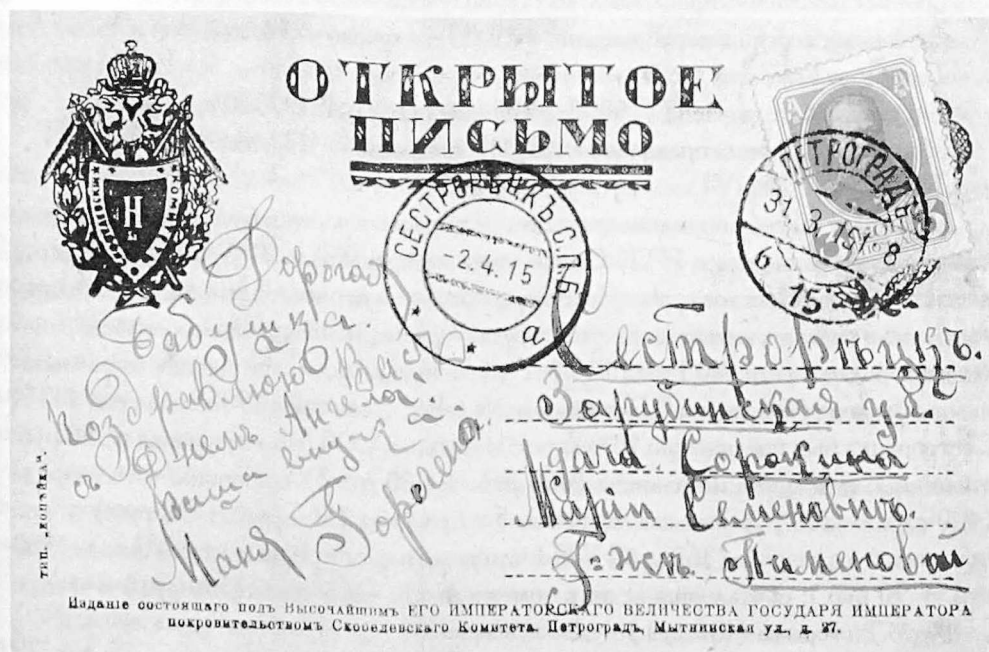 ОТКРЫТОЕ
ПИСЬМО
СЕСТРОРѢЦКЪ С.ПБ.
-2.4.15
а
ПЕТРОГРАДЪ
31 3 15
8
6 5
Дорогая
бабушка
Поздравляю Вас
съ Днемъ Ангела.
Ваша внучка
Маня Бергеръ.
Сестрорѣцкъ.
Зарудинская ул.
дача Сорокина
Маріи Семеновнѣ.
Г-жѣ Пименовой
ТИП. „ЕВРОПЕЙКА"
Изданіе состоящаго подъ Высочайшимъ ЕГО ИМПЕРАТОРСКАГО ВЕЛИЧЕСТВА ГОСУДАРЯ ИМПЕРАТОРА
покровительствомъ Скобелевскаго Комитета. Петроградъ, Мытнинская ул., д. 27.